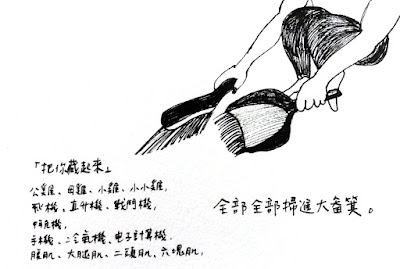 「把你藏起來」
公雞、母雞、小雞、小小雞，
飛機、直升機、戰鬥機，
手機、冷氣機、电子計算機，
腹肌、大腿肌、二頭肌、六塊肌，
全部全部掃進大畚箕。